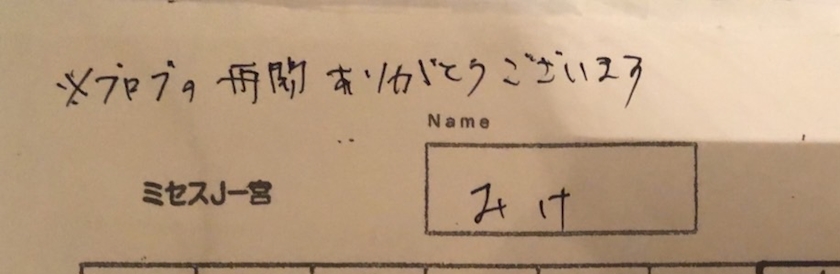 ※ブログの再開ありがとうございます
Name
ミセスJ一宮
みけ